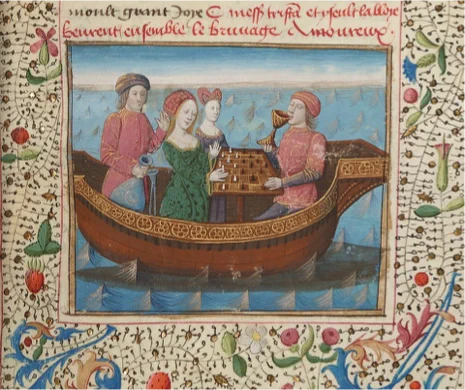 moult grant Joye C mess tristã et yseult la bloye
beurent ensemble le bruvage Amoureux